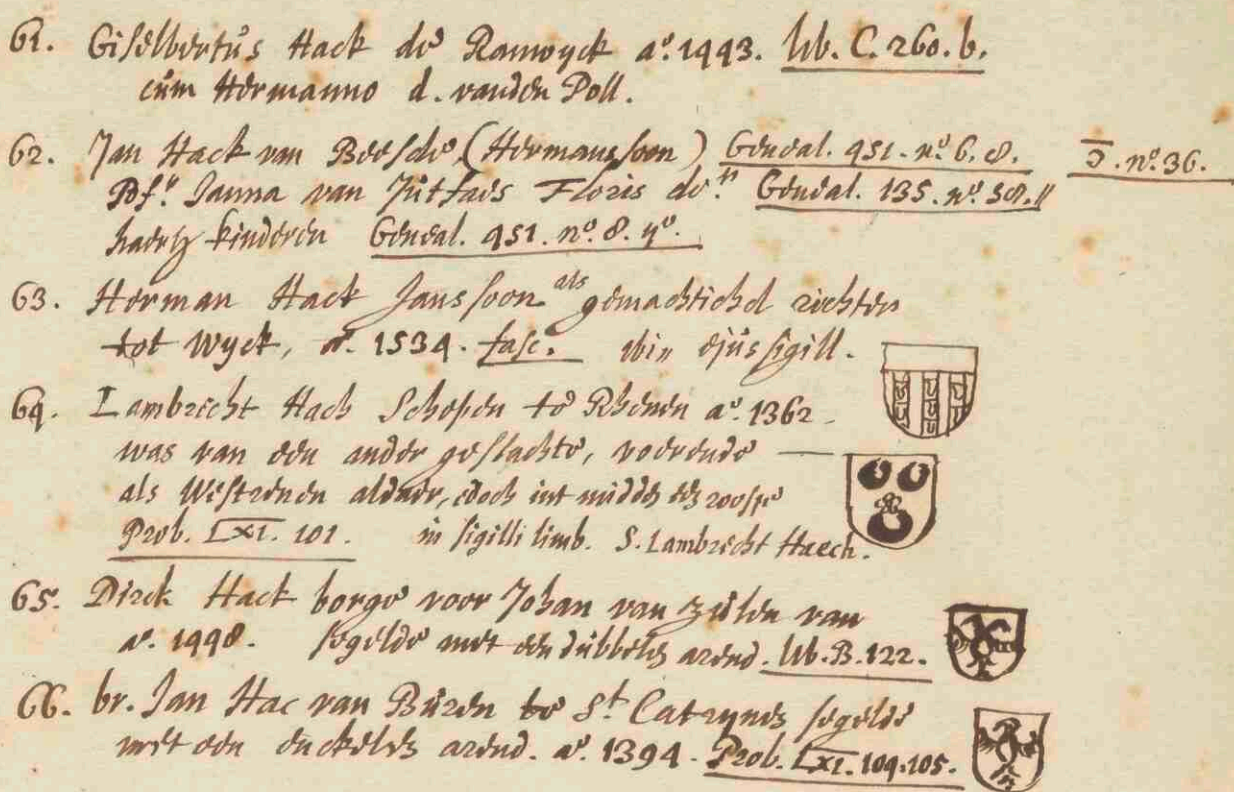 61. Giselbertus Hack de Ranwyck aº. 1443. lib. C. 260. b.
cum Hermanno d. vanden Poll.
62. Jan Hack van Beesde (Hermanssoon) Geneal. 451. nº. 6. 8. nº. 36.
Janna van Jutfaes Floris Geneal. 135. nº.
haer kinderen Geneal. 451. nº. 8. 4º.
63. Herman Hack Janssoon als gemachticht richter
tot Wyck, aº. 1534. fasc. ejus sigill.
64. Lambrecht Hack Schepen te Rhenen aº. 1362
was van een ander geslachte, voerende
als Westrenen aldaer, edoch int midden een roosje
Prob. LXI. 101. in sigilli limb. S. Lambrecht Haech.
65. Dirck Hack borge voor Johan van Zulen van
aº. 1448. segelde met een dubbelen arend. lib. B. 122.
66. br. Jan Hac van Buren te St. Catrynen segelde
met een enckelen arend. aº. 1394. Prob. LXI. 104. 105.